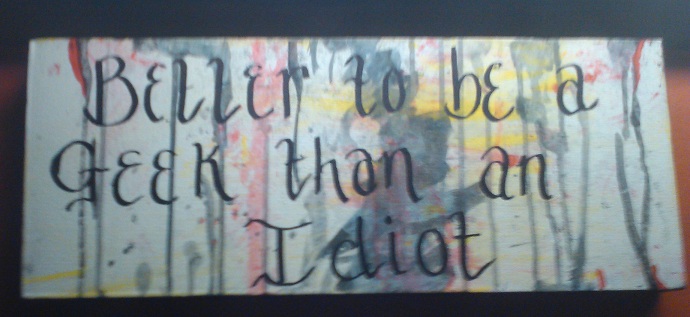 Better to be a
Geek than an
Idiot